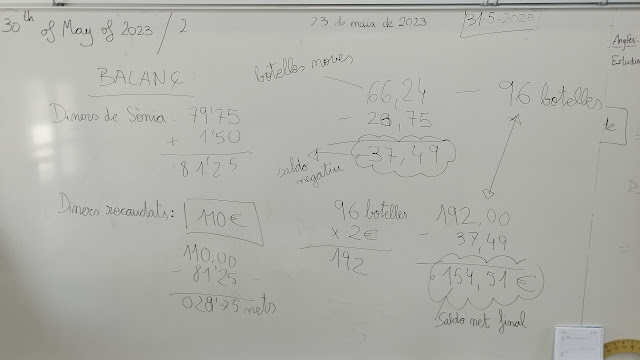 30th of May of 2023 / 2
23 de maia de 2023
31-5-2023
Anglès.
Estudia
BALANÇ
Diners de Sònia: 79'75
+ 1'50
81'25
Diners recaudats: 110€
110,00
- 81'25
028'75 nets
botelles noves
66,24 — 96 botelles
- 28,75
37,49
saldo
negatiu
96 botelles
x 2€
192
192,00
- 37,49
154,51€
Saldo net final
te